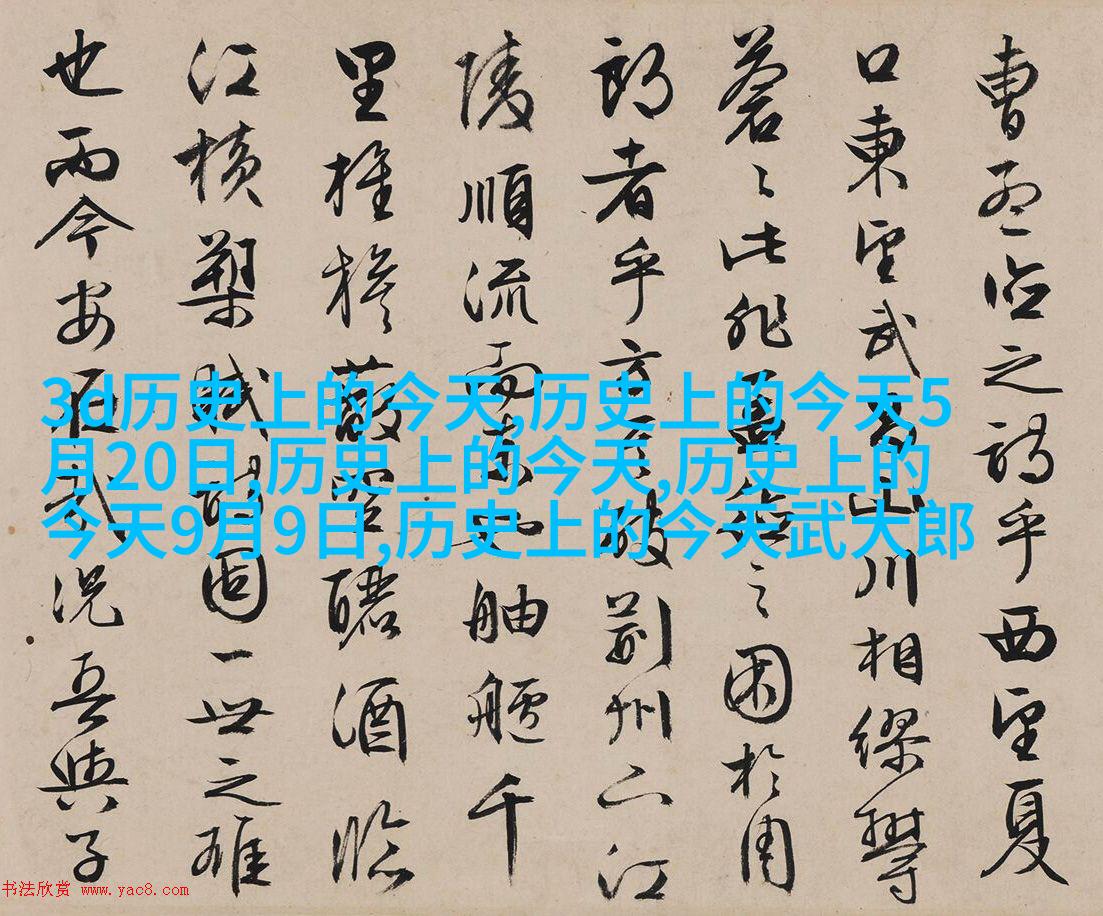 曹孟德之詩乎西望夏
口東望武昌山川相繆鬱
蒼〻此非孟德之困於周
郎者乎方其破荊州下江
陵順流而東也舳艫千
里旌旗蔽空釃酒臨
江橫槊賦詩固一世之雄
也而今安在哉況吾與子
3d历史上的今天,历史上的今天5
月20日,历史上的今天,历史上的
今天9月9日,历史上的今天武大郎
书法欣赏 www.yac8.com